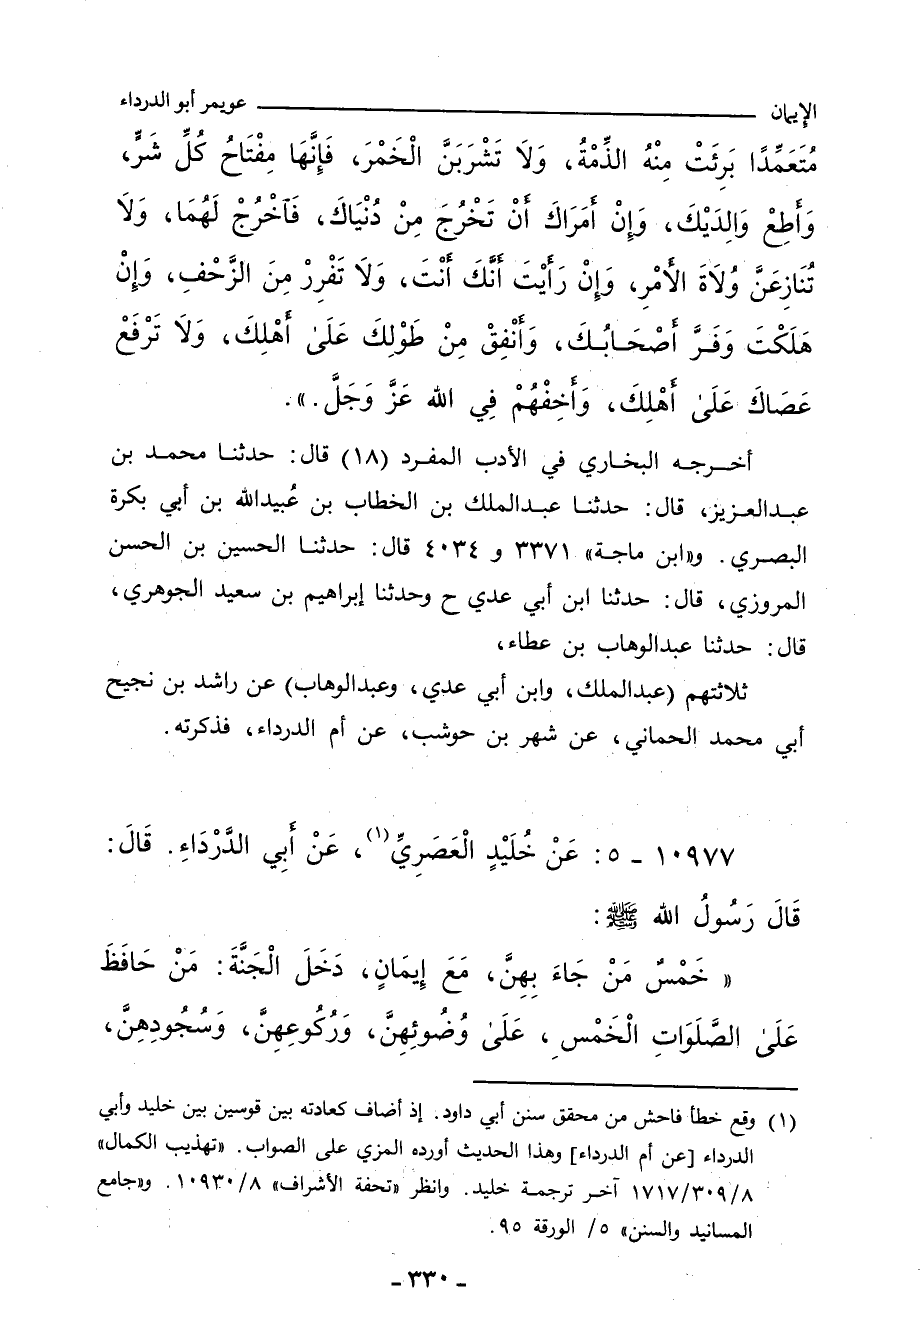 الإيمان ــــــــــــــــــــ عويمر أبو الدرداء
مُتَعَمِّدًا بَرِئَتْ مِنْهُ الذِّمْةُ، وَلَا تَشْرَبَنَّ الْخَمْرَ، فَإِنَّهَا مِفْتَاحُ كُلِّ شَرٍّ،
وَأَطِعْ وَالِدَيْكَ، وَإِنْ أَمَرَاكَ أَنْ تَخْرُجَ مِنْ دُنْيَاكَ، فَآخْرُجْ لَهُمَا، وَلَا
تُنَازِعَنَّ وُلَاةَ الأَمْرِ، وَإِنْ رَأَيْتَ أَنَّكَ أَنْتَ، وَلَا تَفْرِرْ مِنَ الزَّحْفِ، وَإِنْ
هَلَكْتَ وَفَرَّ أَصْحَابُكَ، وَأَنْفِقْ مِنْ طَوْلِكَ عَلَىٰ أَهْلِكَ، وَلَا تَرْفَعْ
عَصَاكَ عَلَىٰ أَهْلِكَ، وَأَخِفْهُمْ فِي الله عَزَّ وَجَلَّ.».
أخرجه البخاري في الأدب المفرد (١٨) قال: حدثنا محمد بن
عبدالعزيز، قال: حدثنا عبدالملك بن الخطاب بن عُبيدالله بن أبي بكرة
البصري. و«ابن ماجة» ٣٣٧١ و ٤٠٣٤ قال: حدثنا الحسين بن الحسن
المروزي، قال: حدثنا ابن أبي عدي ح وحدثنا إبراهيم بن سعيد الجوهري،
قال: حدثنا عبدالوهاب بن عطاء،
ثلاثتهم (عبدالملك، وابن أبي عدي، وعبدالوهاب) عن راشد بن نجيح
أبي محمد الحماني، عن شهر بن حوشب، عن أم الدرداء، فذكرته.
١٠٩٧٧ ـ ٥: عَنْ خُلَيْدٍ الْعَصَرِيِّ(١)، عَنْ أَبِي الدَّرْدَاءِ. قَالَ:
قَالَ رَسُولُ الله ﷺ:
« خَمْسٌ مَنْ جَاءَ بِهِنَّ، مَعَ إِيمَانٍ، دَخَلَ الْجَنَّةَ: مَنْ حَافَظَ
عَلَىٰ الصَّلَوَاتِ الْخَمْسِ، عَلَىٰ وُضُوئِهِنَّ، وَرُكُوعِهِنَّ، وَسُجُودِهِنَّ،
(١) وقع خطأ فاحش من محقق سنن أبي داود. إذ أضاف كعادته بين قوسين بين خليد وأبي
الدرداء [عن أم الدرداء] وهذا الحديث أورده المزي على الصواب. «تهذيب الكمال»
٨/٣٠٩/١٧١٧ آخر ترجمة خليد. وانظر «تحفة الأشراف» ٨/١٠٩٣٠. و«جامع
المسانيد والسنن» ٥/ الورقة ٩٥.
ـ ٣٣٠ ـ